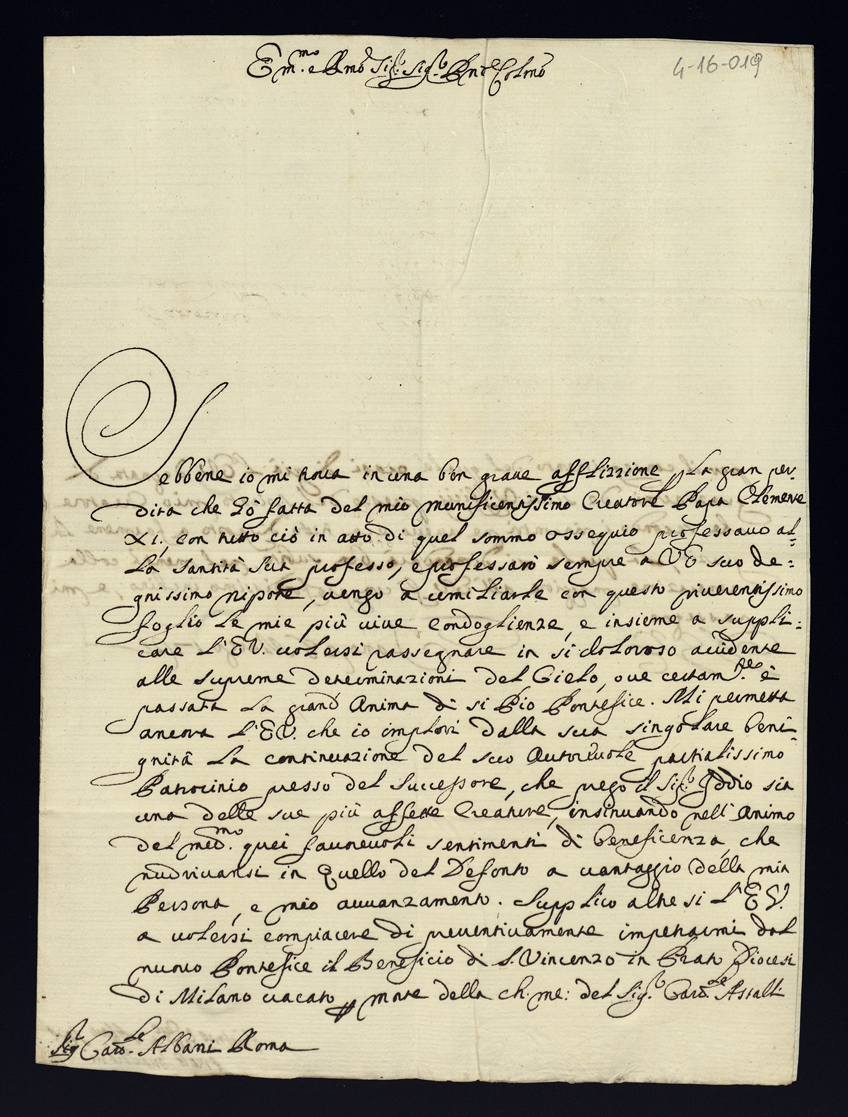 Em.mo e Rmo Sig.r Sig.r Pne Colmo
4-16-019
Sebbene io mi trova in una ben grave afflizzione p la gran per-
dita che hò fatta del mio munificentissimo Creatore Papa Clemente
XI, con tutto ciò in atto di quel sommo ossequio professavo al-
la Santità Sua professo, e professarò sempre a VE suo de:
gnissimo nipote, vengo a umiliarle con questo riverentissimo
foglio le mie più vive condoglienze, e insieme a suppli:
care l'EV. volersi rassegnare in si doloroso accidente
alle supreme determinazioni del Cielo, ove certam.te è
passata la grand Anima di si Pio Pontefice. Mi permetta
ancora l'EV. che io implori dalla sua singolare beni-
gnità la continuazione del suo Autorevole parzialissimo
Patrocinio presso del Successore, che prego il Sig.r Iddio sia
una delle sue più affette Creature, insinuando nell'Animo
del med.mo quei favorevoli sentimenti di beneficenza, che
nudrivansi in Quello del Defonto a vantaggio della mia
Persona, e mio avvanzamento. Supplico altresi l'EV.
a volersi compiacere di preventivamente impetrarmi dal
nuovo Pontefice il Beneficio di S. Vincenzo in Prato Diocesi
di Milano vacato p morte della ch: me: del Sig.r Card.le Astalli
Sig.r Card.le Albani Roma